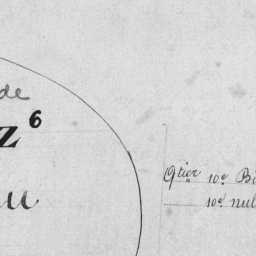 de
Z 6
au
Qtier 10e Bi
10e nul